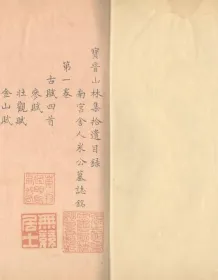 寶晉山林集拾遺目錄
南宮舍人米公墓誌銘
第一卷
古賦四首
參賦
壯觀賦
金山賦
無競居士